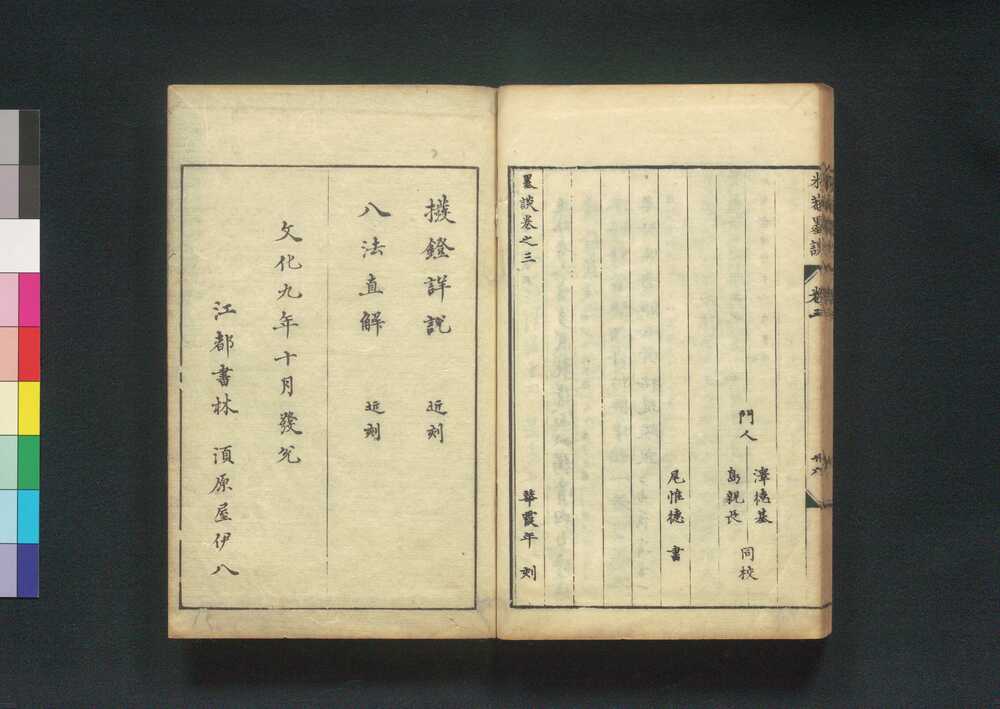 米菴墨談 卷三 卅六
門人 澤德基 島親長 同校
尾惟德 書
墨談卷之三 華霞年 刻
撥鐙詳說 近刻
八法直解 近刻
文化九年十月發兌
江都書林 須原屋伊八